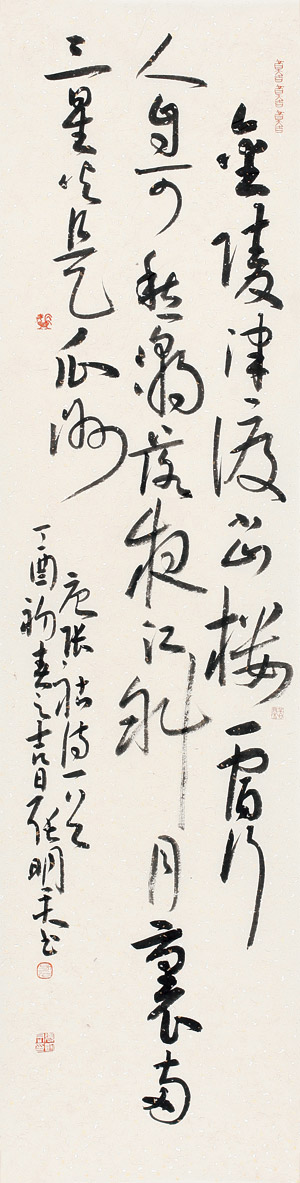 金陵津渡小山楼一宿行
人自可愁潮落夜江斜月裏两
三星火是瓜洲
唐張祜詩一首
丁酉初春之吉日張明天书